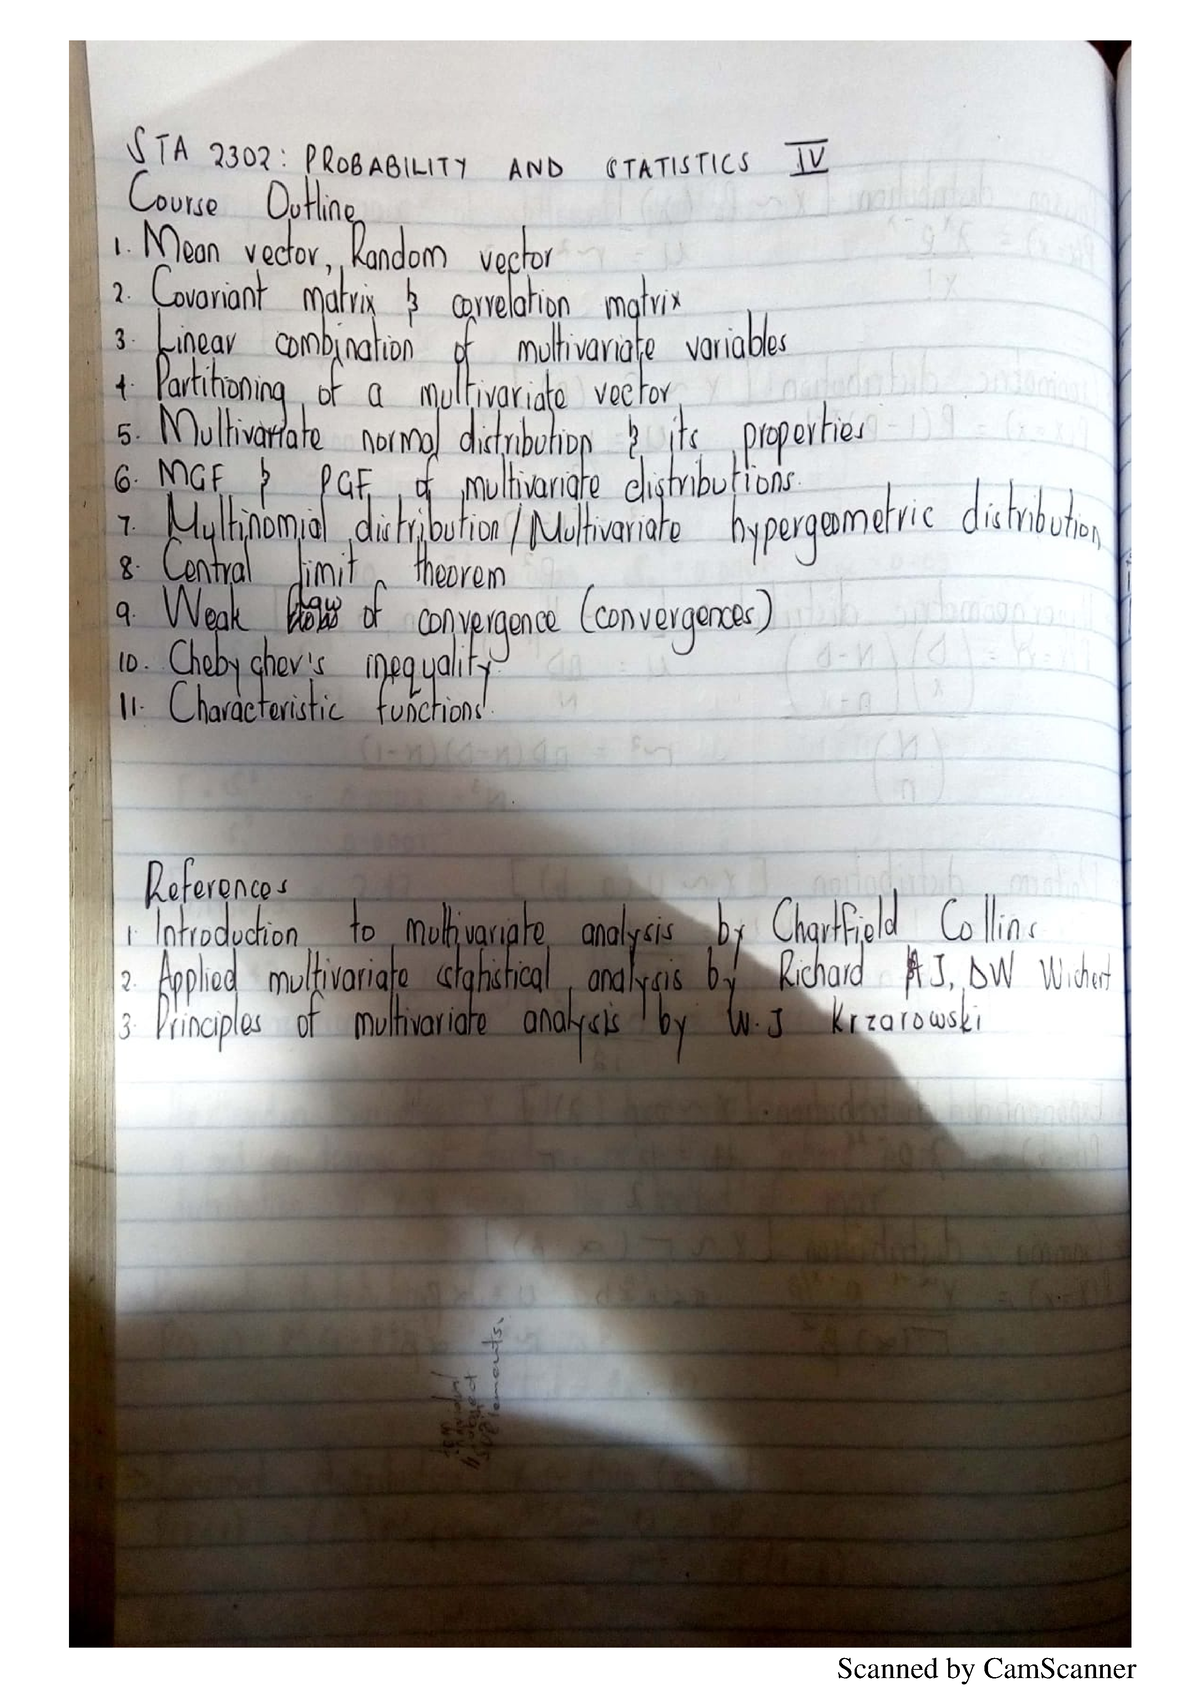 STA 2302: PROBABILITY AND STATISTICS IV
Course Outline
1. Mean vector, Random vector
2. Covariant matrix & correlation matrix
3. Linear combination of multivariate variables
4. Partitioning of a multivariate vector
5. Multivariate normal distribution & its properties
6. MGF & PGF of multivariate distributions.
7. Multinomial distribution / Multivariate hypergeometric distribution
8. Central limit theorem
9. Weak of convergence (convergences)
10. Chebychev's inequality
11. Characteristic functions.
References
1 Introduction to multivariate analysis by Chartfield Collins
2. Applied multivariate statistical analysis by Richard A J, DW Wichert
3 Principles of multivariate analysis by W.J Krzarowski
Scanned by CamScanner